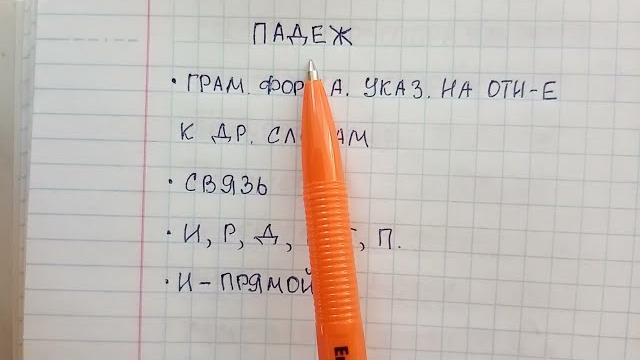 ПАДЕЖ
• ГРАМ. УКАЗ. НА ОТН-Е
К ДР.
• СВЯЗЬ
• И, Р, Д, П.
• И – ПРЯМОЙ